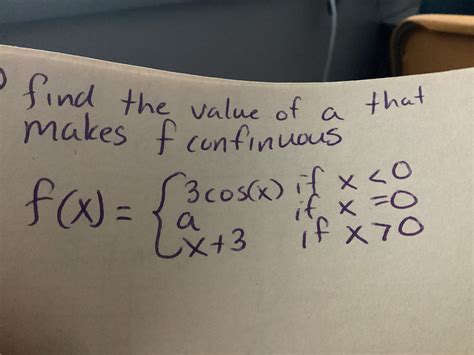 find the value of a that
makes f continuous
f(x) = { 3cos(x) if x < 0
a if x = 0
x+3 if x > 0